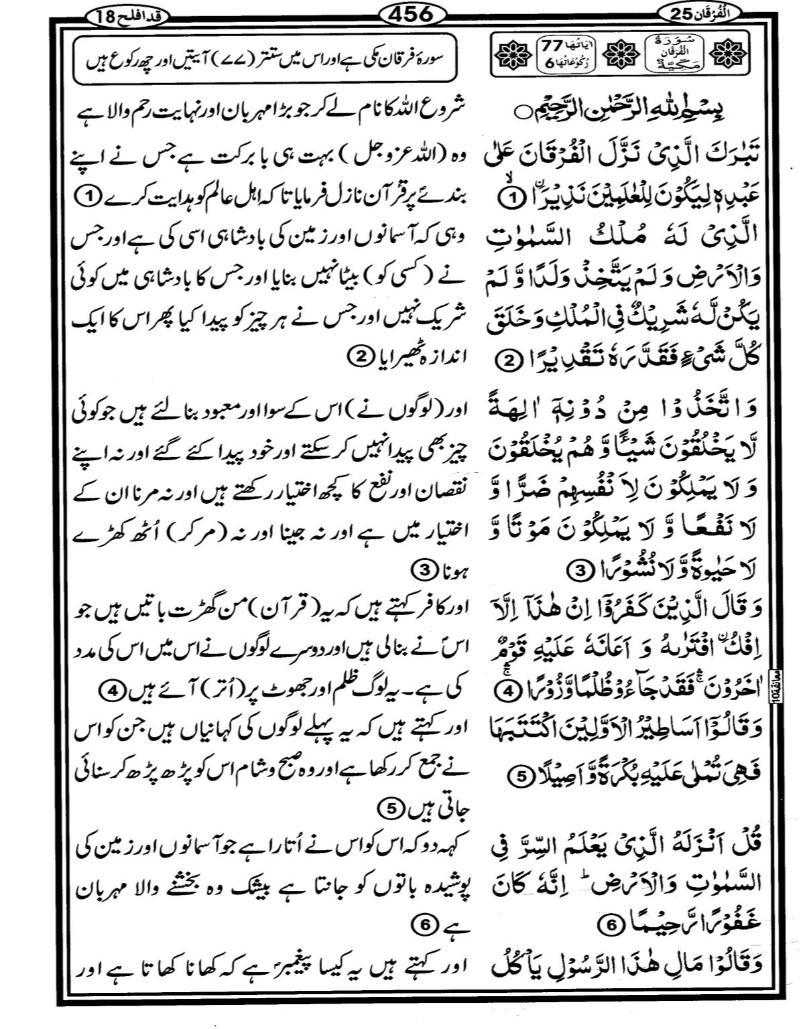 اَلْفُرْقَان 25
456
قد افلح 18
سُوْرَةُ الْفُرْقَان مَكِّيَّةٌ
اٰيَاتُهَا 77
رُكُوْعَاتُهَا 6
سورۂ فرقان مکی ہے اور اس میں ستتر (۷۷) آیتیں اور چھ رکوع ہیں
بِسْمِ اللّٰهِ الرَّحْمٰنِ الرَّحِيْمِ ○
تَبٰرَكَ الَّذِىْ نَزَّلَ الْفُرْقَانَ عَلٰى
عَبْدِهٖ لِيَكُوْنَ لِلْعٰلَمِيْنَ نَذِيْرًا ۙ ①
الَّذِىْ لَهٗ مُلْكُ السَّمٰوٰتِ
وَالْاَرْضِ وَلَمْ يَتَّخِذْ وَلَدًا وَّلَمْ
يَكُنْ لَّهٗ شَرِيْكٌ فِى الْمُلْكِ وَخَلَقَ
كُلَّ شَىْءٍ فَقَدَّرَهٗ تَقْدِيْرًا ②
وَاتَّخَذُوْا مِنْ دُوْنِهٖۤ اٰلِهَةً
لَّا يَخْلُقُوْنَ شَيْـًٔا وَّهُمْ يُخْلَقُوْنَ
وَلَا يَمْلِكُوْنَ لِاَنْفُسِهِمْ ضَرًّا وَّ
لَا نَفْعًا وَّلَا يَمْلِكُوْنَ مَوْتًا وَّ
لَا حَيٰوةً وَّلَا نُشُوْرًا ③
وَقَالَ الَّذِيْنَ كَفَرُوْۤا اِنْ هٰذَاۤ اِلَّاۤ
اِفْكٌ ۨافْتَرٰٮهُ وَاَعَانَهٗ عَلَيْهِ قَوْمٌ
اٰخَرُوْنَ ۛۚ فَقَدْ جَآءُوْ ظُلْمًا وَّزُوْرًا ۛۚ ④
وَقَالُوْۤا اَسَاطِيْرُ الْاَوَّلِيْنَ اكْتَتَبَهَا
فَهِىَ تُمْلٰى عَلَيْهِ بُكْرَةً وَّاَصِيْلًا ⑤
قُلْ اَنْزَلَهُ الَّذِىْ يَعْلَمُ السِّرَّ فِى
السَّمٰوٰتِ وَالْاَرْضِ ؕ اِنَّهٗ كَانَ
غَفُوْرًا رَّحِيْمًا ⑥
وَقَالُوْا مَالِ هٰذَا الرَّسُوْلِ يَاْكُلُ
معانقة 10
شروع اللہ کا نام لے کر جو بڑا مہربان اور نہایت رحم والا ہے
وہ (اللہ عزوجل) بہت ہی بابرکت ہے جس نے اپنے
بندے پر قرآن نازل فرمایا تاکہ اہل عالم کو ہدایت کرے ①
وہی کہ آسمانوں اور زمین کی بادشاہی اسی کی ہے اور جس
نے (کسی کو) بیٹا نہیں بنایا اور جس کا بادشاہی میں کوئی
شریک نہیں اور جس نے ہر چیز کو پیدا کیا پھر اس کا ایک
اندازہ ٹھیرایا ②
اور (لوگوں نے) اس کے سوا اور معبود بنا لئے ہیں جو کوئی
چیز بھی پیدا نہیں کر سکتے اور خود پیدا کئے گئے اور نہ اپنے
نقصان اور نفع کا کچھ اختیار رکھتے ہیں اور نہ مرنا ان کے
اختیار میں ہے اور نہ جینا اور نہ (مر کر) اُٹھ کھڑے
ہونا ③
اور کافر کہتے ہیں کہ یہ (قرآن) من گھڑت باتیں ہیں جو
اس نے بنالی ہیں اور دوسرے لوگوں نے اس میں اس کی مدد
کی ہے۔ یہ لوگ ظلم اور جھوٹ پر (اُتر) آئے ہیں ④
اور کہتے ہیں کہ یہ پہلے لوگوں کی کہانیاں ہیں جن کو اس
نے جمع کر رکھا ہے اور وہ صبح و شام اس کو پڑھ پڑھ کر سنائی
جاتی ہیں ⑤
کہہ دو کہ اس کو اس نے اُتارا ہے جو آسمانوں اور زمین کی
پوشیدہ باتوں کو جانتا ہے بیشک وہ بخشنے والا مہربان
ہے ⑥
اور کہتے ہیں یہ کیسا پیغمبرؐ ہے کہ کھانا کھاتا ہے اور